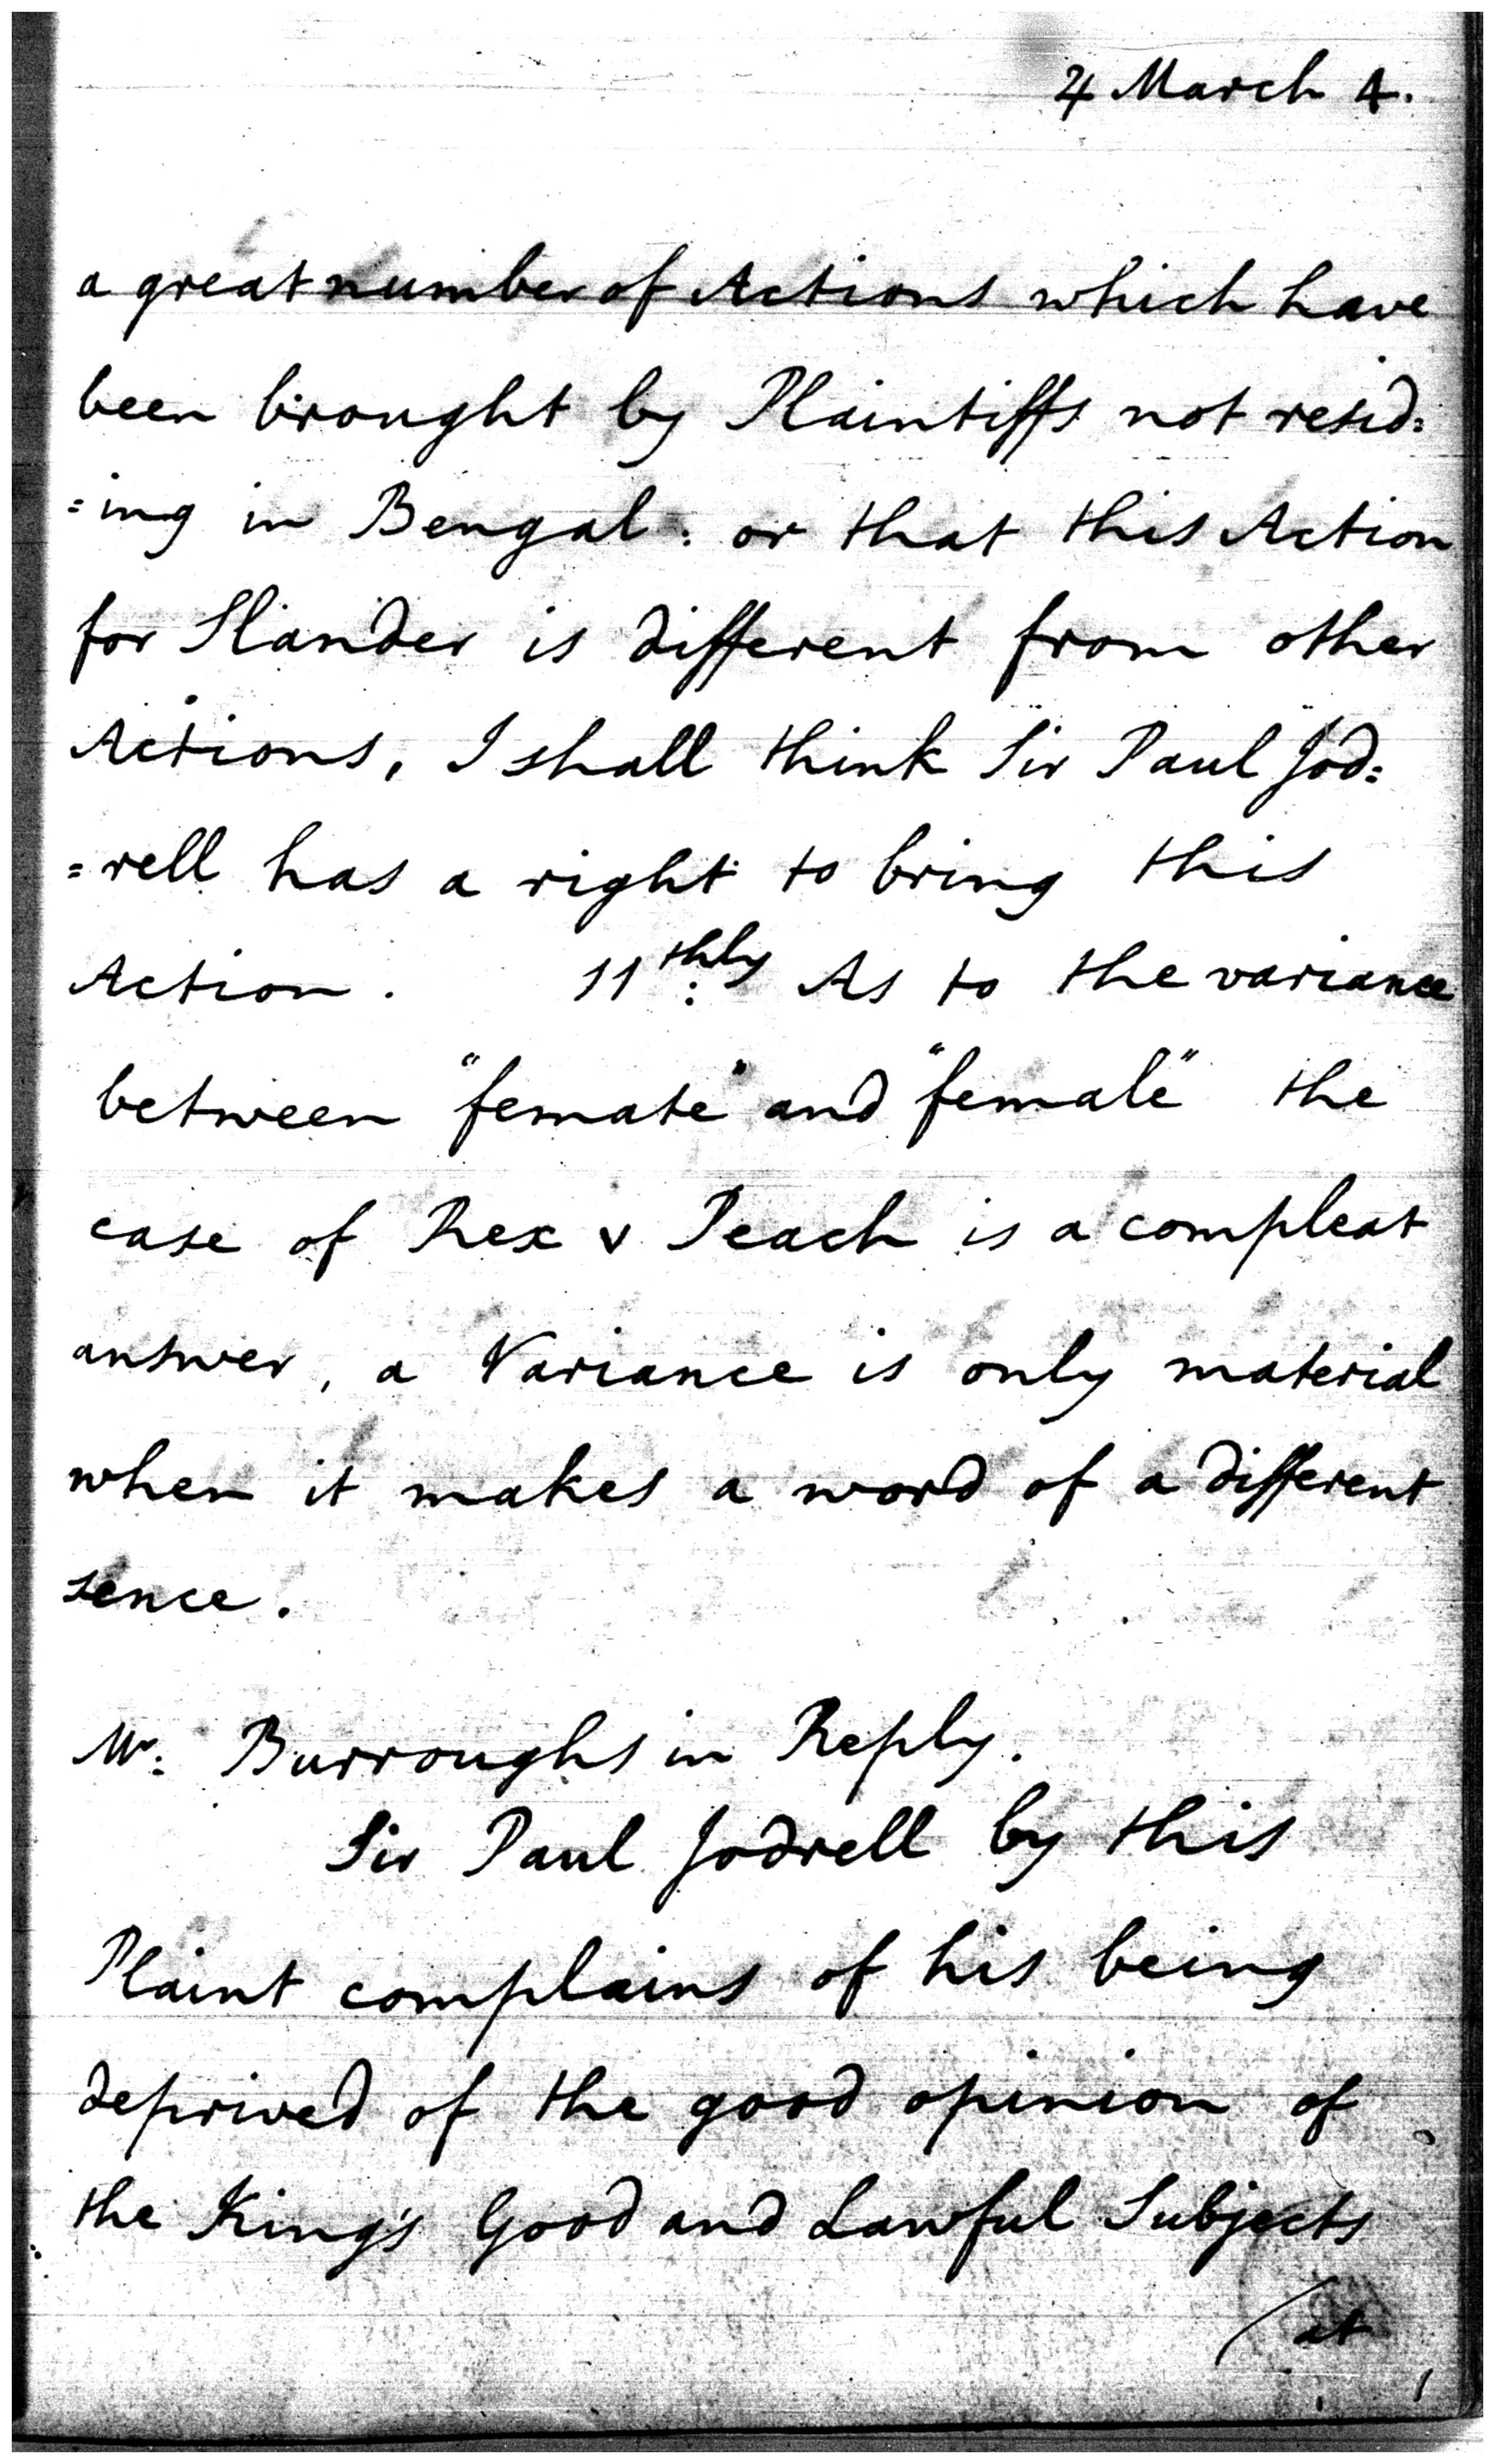 4 March 4.
a great number of Actions which have
been brought by Plaintiffs not resid=
=ing in Bengal: or that this Action
for Slander is different from other
Actions, I shall think Sir Paul Jod=
=rell has a right to bring this
Action. 11thly As to the variance
between "femate" and "female" the
case of Rex v Peach is a compleat
answer, a Variance is only material
when it makes a word of a different
sence.
Mr: Burroughs in Reply.
Sir Paul Jodrell by this
Plaint complains of his being
deprived of the good opinion of
the King's Good and Lawful Subjects
/at